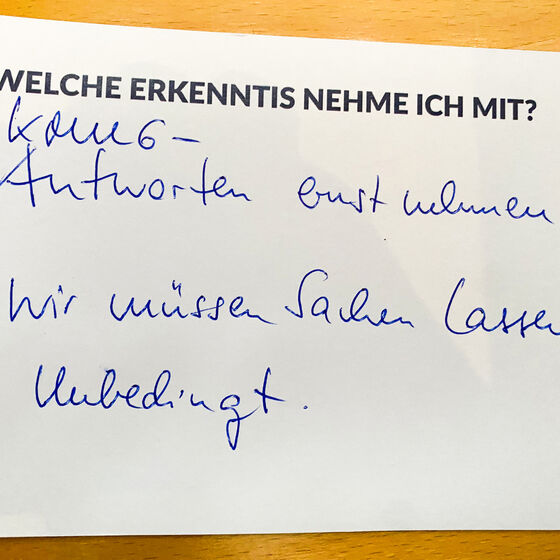 WELCHE ERKENNTIS NEHME ICH MIT?
Antworten ernst nehmen
Wir müssen Sachen lassen
Unbedingt.